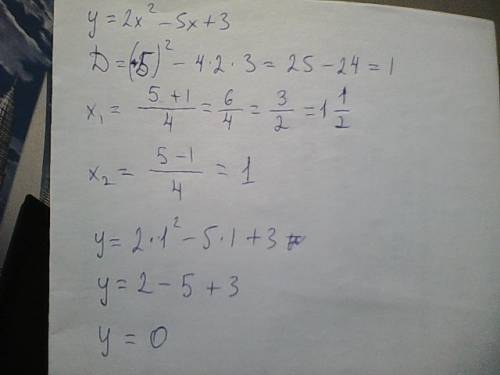 y = 2x² - 5x + 3
D = (-5)² - 4·2·3 = 25 - 24 = 1
x₁ = (5+1)/4 = 6/4 = 3/2 = 1 1/2
x₂ = (5-1)/4 = 1
y = 2·1² - 5·1 + 3
y = 2 - 5 + 3
y = 0